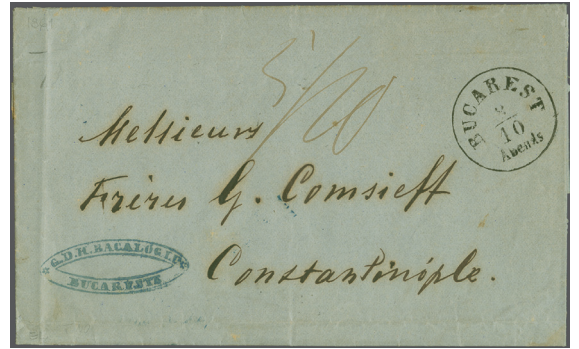 5/20
BUCAREST
2/10
Abends
Messieurs
Frères G. Comsieff
Constantinople.
* G.D.H. BACALOGLU *
BUCARESTE